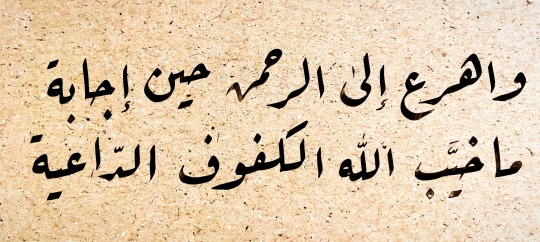 واهرع إلى الرحمن حين إجابة
ما خيَّب الله الكفوف الدّاعية